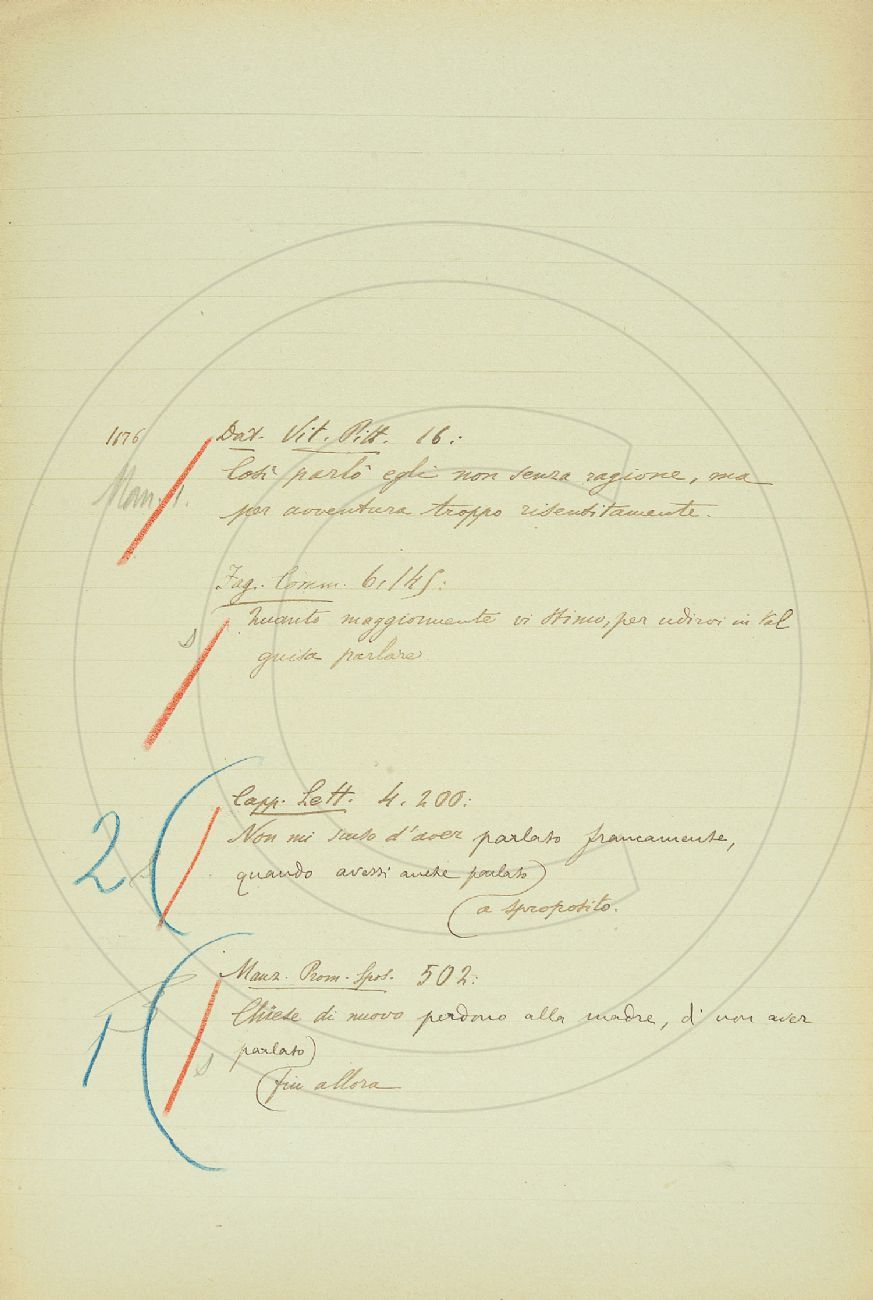 1176 Dat. Vit. Pitt. 16:
Così parlò egli non senza ragione, ma
per avventura troppo risentitamente.
Man. 1.
Fag. Comm. 6. 145:
Quanto maggiormente vi stimo, per udirvi in tal
guisa parlare
s
2
Capp. Lett. 4. 200:
Non mi pento d'aver parlato francamente,
quando avessi anche parlato
a sproposito.
1
Manz. Prom. Spos. 502:
Chiese di nuovo perdono alla madre, di non aver
parlato
s
fin allora